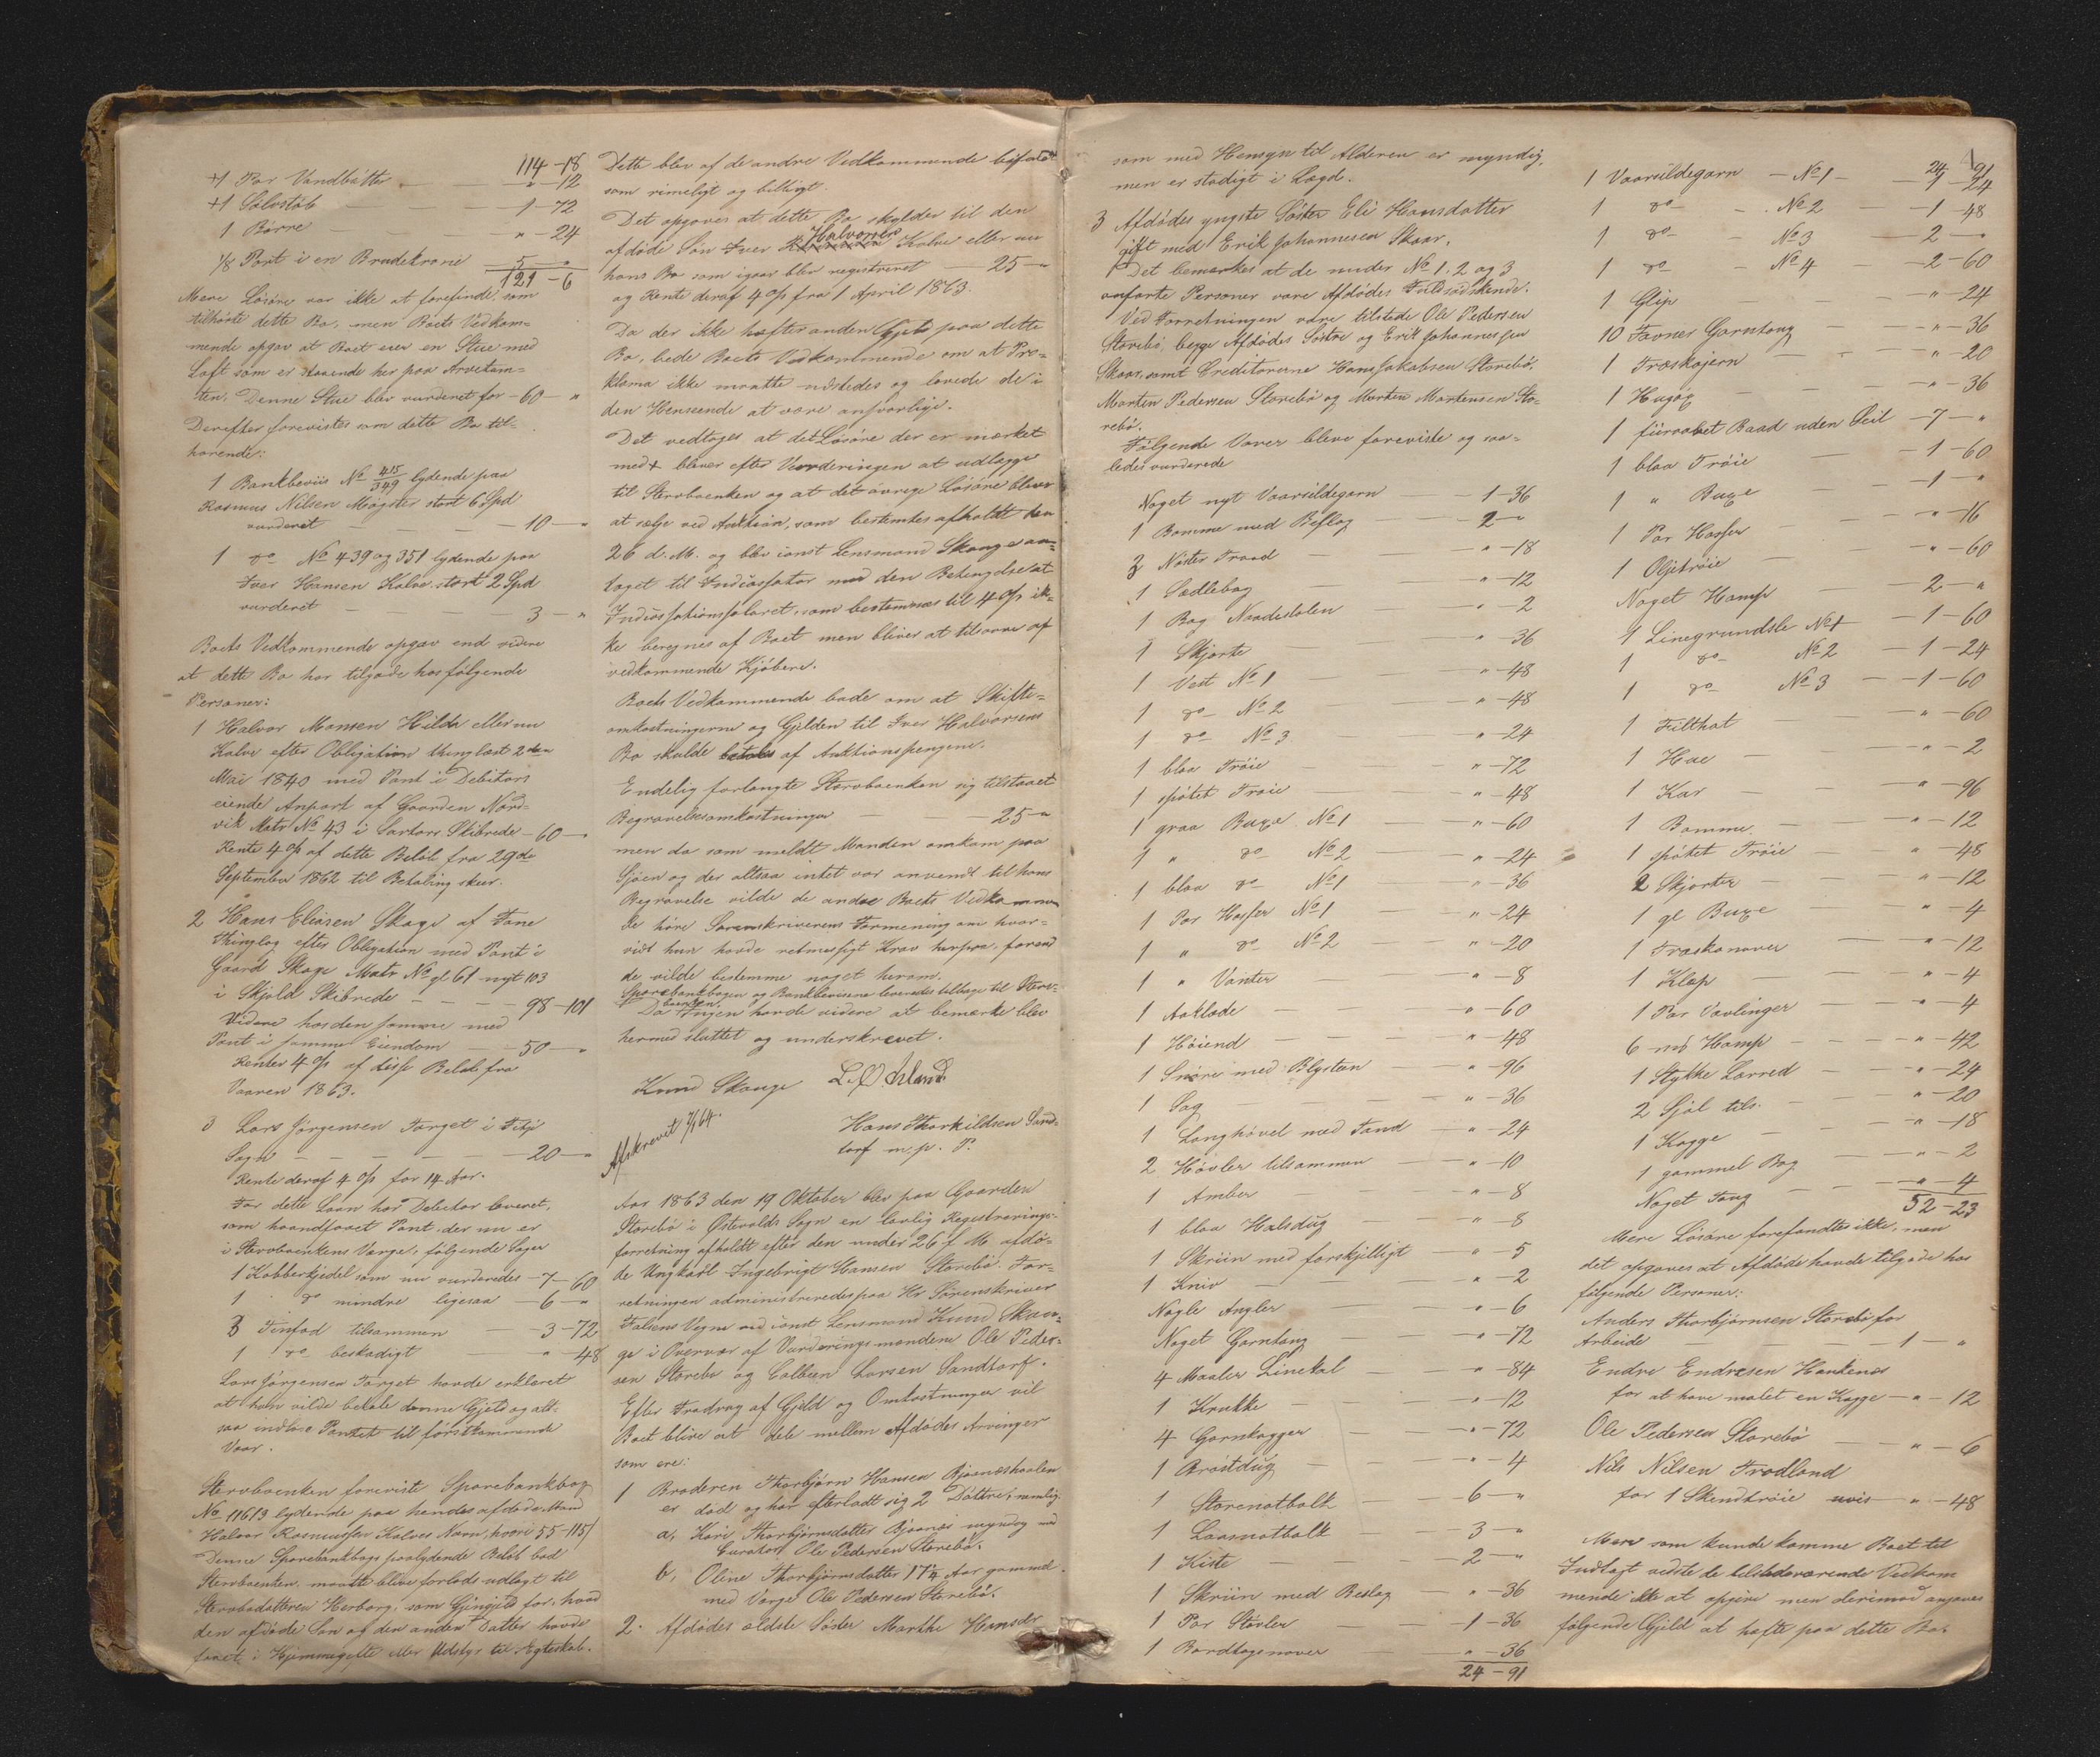 114-18
+1 Par Vandbøtter - "-12
+1 Salvstøb - 1-72
1 Børre - "-24
1/8 Part i en Brudekrone - 5-"
121-6
Mere Løsøre var ikke at forefinde, som
tilhørte dette Bo, men Boets Vedkom-
mende opgav at Boet eier en Stue med
Loft som er staaende her paa Arvetom-
ten. Denne Stue blev vurderet for -60-"
Derefter forevistes som dette Bo til-
hørende:
1 Bankbeviis No 415/349 lydende paa
Rasmus Nilsen Møgster stort 6 Spd
vurderet - 10-"
1 do No 439 og 351 lydende paa
Iver Hansen Kalve stort 2 Spd
vurderet - 3-"
Boets Vedkommende opgav end videre
at dette Bo har tilgode hos følgende
Personer:
1 Halvor Monsen Hilde eller nu
Kalve efter Obligation thinglæst 2den
Mai 1840 med Pant i Debitors
eiende Anpart af Gaarden Nord-
vik Matr No 43 i Sartors Skibrede -60-"
Rente 4 % af dette Beløb fra 29de
September 1862 til Betaling skeer.
2 Hans Eliasen Skage af Fane
Thinglag efter Obligation med Pant i
Gaard Skage Matr No gl 61 nyt 103
i Skjold Skibrede - 98-101
Videre hos den samme med
Pant i samme Eiendom - 50-"
Renter 4 % af disse Beløb fra
Vaaren 1863.
3 Lars Jørgensen Torget i Fitje
Sogn - 20-"
Rente deraf 4 % for 14 Aar.
For dette Laan har Debitor leveret,
som haandfaaet Pant, der nu er
i Stervboenkens Værge, følgende Sager
1 Kobberkjedel som nu vurderedes -7-60
1 do mindre ligesaa -6-"
3 Tinfad tilsammen - 3-72
1 do beskadigt - "-48
Lars Jørgensen Torget havde erklæret
at han vilde betale denne Gjeld og alt-
saa indløse Pantet til førstkommende
Vaar.
Stervboenken foreviste Sparebankbog
No 11613 lydende paa hendes afdøde Mand
Halvor Rasmussen Kalves Navn, hvori 55-115/
Denne Sparebankbogs paalydende Beløb bad
Stervboenken maatte blive forlods udlagt til
Stervbodatteren Herborg, som Gjengjeld for, hvad
den afdøde Søn og den anden Datter havde
faaet i Hjemmegifte eller Udstyr til Ægteskab.
Dette blev af de andre Vedkommende bifaldt
som rimeligt og billigt.
Det opgaves at dette Bo skylder til den
afdøde Søn Iver Halvorsen Kalve eller nu
hans Bo som igaar blev registreret - 25-"
og Rente deraf 4 % fra 1 April 1863.
Da der ikke hæfter anden Gjeld paa dette
Bo, bede Boets Vedkommende om at Pro-
klama ikke maatte udstedes og lovede de i
den Henseende at være ansvarlige.
Det vedtages at det Løsøre der er mærket
med + bliver efter Vurderingen at udlægge
til Stervboenken og at det øvrige Løsøre bliver
at sælge ved Auktion, som bestemtes afholdt den
26 d. M. og blev const Lensmand Skauge an-
taget til Incassator med den Betingelse at
Incassationssalaret, som bestemmes til 4 % ik-
ke beregnes af Boet men bliver at tilsvare af
vedkommende Kjøbere.
Boets Vedkommende bade om at Skifte-
omkostningerne og Gjælden til Iver Halvorsens
Bo skulde betales af Auktionspengene.
Endelig forlangte Stervboenken sig tilstaaet
Begravelsesomkostninger - 25-"
men da som meldt Manden omkom paa
Sjøen og der altsaa intet var anvendt til hans
Begravelse vilde de andre Boets Vedkommen
de høre Sorenskriverens Formening om hvor-
vidt hun havde retmæssigt Krav herpaa, førend
de vilde bestemme noget herom.
Sparebankbogen og Bankbeviserne leveredes tilbage til Sterv-
boenken.
Da Ingen havde videre at bemærke blev
hermed sluttet og underskrevet.
Knud Skauge L. Ø. Arland
Afskrevet 7/1 64.
Hans Thorkildsen Sand-
torf m. p. P.
Aar 1863 den 19 Oktober blev paa Gaarden
Storebø i Østevolds Sogn en lovlig Registrerings-
forretning afholdt efter den under 26 f. M. afdø-
de Ungkarl Ingebrigt Hansen Storebø. For-
retningen administreredes paa Hr Sorenskriver
Falsens Vegne ved const Lensmand Knud Skau-
ge i Overvær af Vurderingsmændene Ole Peder-
sen Storebø og Colbeen Larsen Sandtorf.
Efter Fradrag af Gjeld og Omkostninger vil
Boet blive at dele mellem Afdødes Arvinger
som ere:
1 Broderen Thorbjørn Hansen Bjoenæshaalen
er død og har efterladt sig 2 Døttre, nemlig:
a, Kari Thorbjørnsdatter Bjoenæs myndig med
Curator Ole Pedersen Storebø.
b, Oline Thorbjørnsdatter 17 1/4 Aar gammel
med Værge Ole Pedersen Storebø.
2. Afdødes ældste Søster Marthe Hansdr
som med Hensyn til Alderen er myndig,
men er stadigt i Lægd.
3 Afdødes yngste Søster Eli Hansdatter
gift med Erik Johannesen Skaar.
Det bemærkes at de under No 1, 2 og 3
anførte Personer vare Afdødes Fuldsødskende.
Ved Forretningen vare tilstede Ole Pedersen
Storebø, begge Afdødes Søstre og Erik Johannessen
Skaar, samt Creditorerne Hans Jakobsen Storebø,
Morten Pedersen Storebø og Morten Mortensen Sto-
rebø.
Følgende Varer bleve foreviste og saa-
ledes vurderede
Noget nyt Vaarsildegarn - 1-36
1 Bomme med Beslag - 2-"
3 Nøster Traad - "-18
1 Sadlebog - "-12
1 Bog Naadestolen - "-2
1 Skjorte - "-36
1 Vest No 1 - "-48
1 do No 2 - "-48
1 do No 3 - "-24
1 blaa Trøie - "-72
1 spøtet Trøie - "-48
1 graa Buxe No 1 - "-60
1 " do No 2 - "-24
1 blaa do No 1 - "-36
1 Par Hosser No 1 - "-24
1 " do No 2 - "-20
1 " Vanter - "-8
1 Aaklæde - "-60
1 Høiend - "-48
1 Snøre med Blysten - "-96
1 Sag - "-36
1 Langhøvel med Tand - "-24
2 Høvler tilsammen - "-10
1 Amber - "-8
1 blaa Halsdug - "-8
1 Skriin med forskjelligt - "-5
1 Kniv - "-2
Nogle Angler - "-6
Noget Garntoug - "-72
4 Maaler Linekal - "-84
1 Krukke - "-12
4 Garnkagger - "-72
1 Brøstdug - "-4
1 Storenotbolk - 6-"
1 Laasnotbolk - 3-"
1 Kiste - 2-"
1 Skriin med Beslag - "-36
1 Par Støvler - 1-36
1 Bordtagenaver - "-36
24-91
24 91
1 Vaarsildegarn - No 1 - 1-24
1 do - No 2 - 1-48
1 do - No 3 - 2-"
1 do - No 4 - 2-60
1 Glip - "-24
10 Favner Garntoug - "-36
1 Træskojern - "-20
1 Hugøx - "-36
1 fiirroret Baad uden Seil -7-"
1 blaa Trøie - 1-60
1 " Buxe - 1-"
1 Par Hosser - "-16
1 Oljetrøie - "-60
Noget Hamp - 2-"
1 Linegrundsle No 1 - 1-60
1 do - No 2 - 1-24
1 do - No 3 - 1-60
1 Filthat - "-60
1 Hue - "-2
1 Kar - "-96
1 Bomme - "-12
1 spøtet Trøie - "-48
2 Skjorter - "-12
1 gl Buxe - "-4
1 Træskonaver - "-12
1 Klep - "-4
1 Par Vavlinger - "-4
6 mk Hamp - "-42
1 Stykke Lærred - "-24
2 Sjøl tils. - "-20
1 Kagge - "-18
1 gammel Bog - "-2
Noget Toug - "-4
52-23
Mere Løsøre forefandtes ikke, men
det opgaves at Afdøde havde tilgode hos
følgende Personer:
Anders Thorbjørnsen Storebø for
Arbeide - 1-"
Endre Endresen Haukenæs
for at have malet en Kagge - "-12
Ole Pedersen Storebø - "-6
Nils Nilsen Trædland
for 1 Skindtrøie uvis - "-48
Mere som kunde komme Boet til
Indtægt vidste de tilstedeværende Vedkom
mende ikke at opgive men derimod angaves
følgende Gjeld at hæfte paa dette Bo.